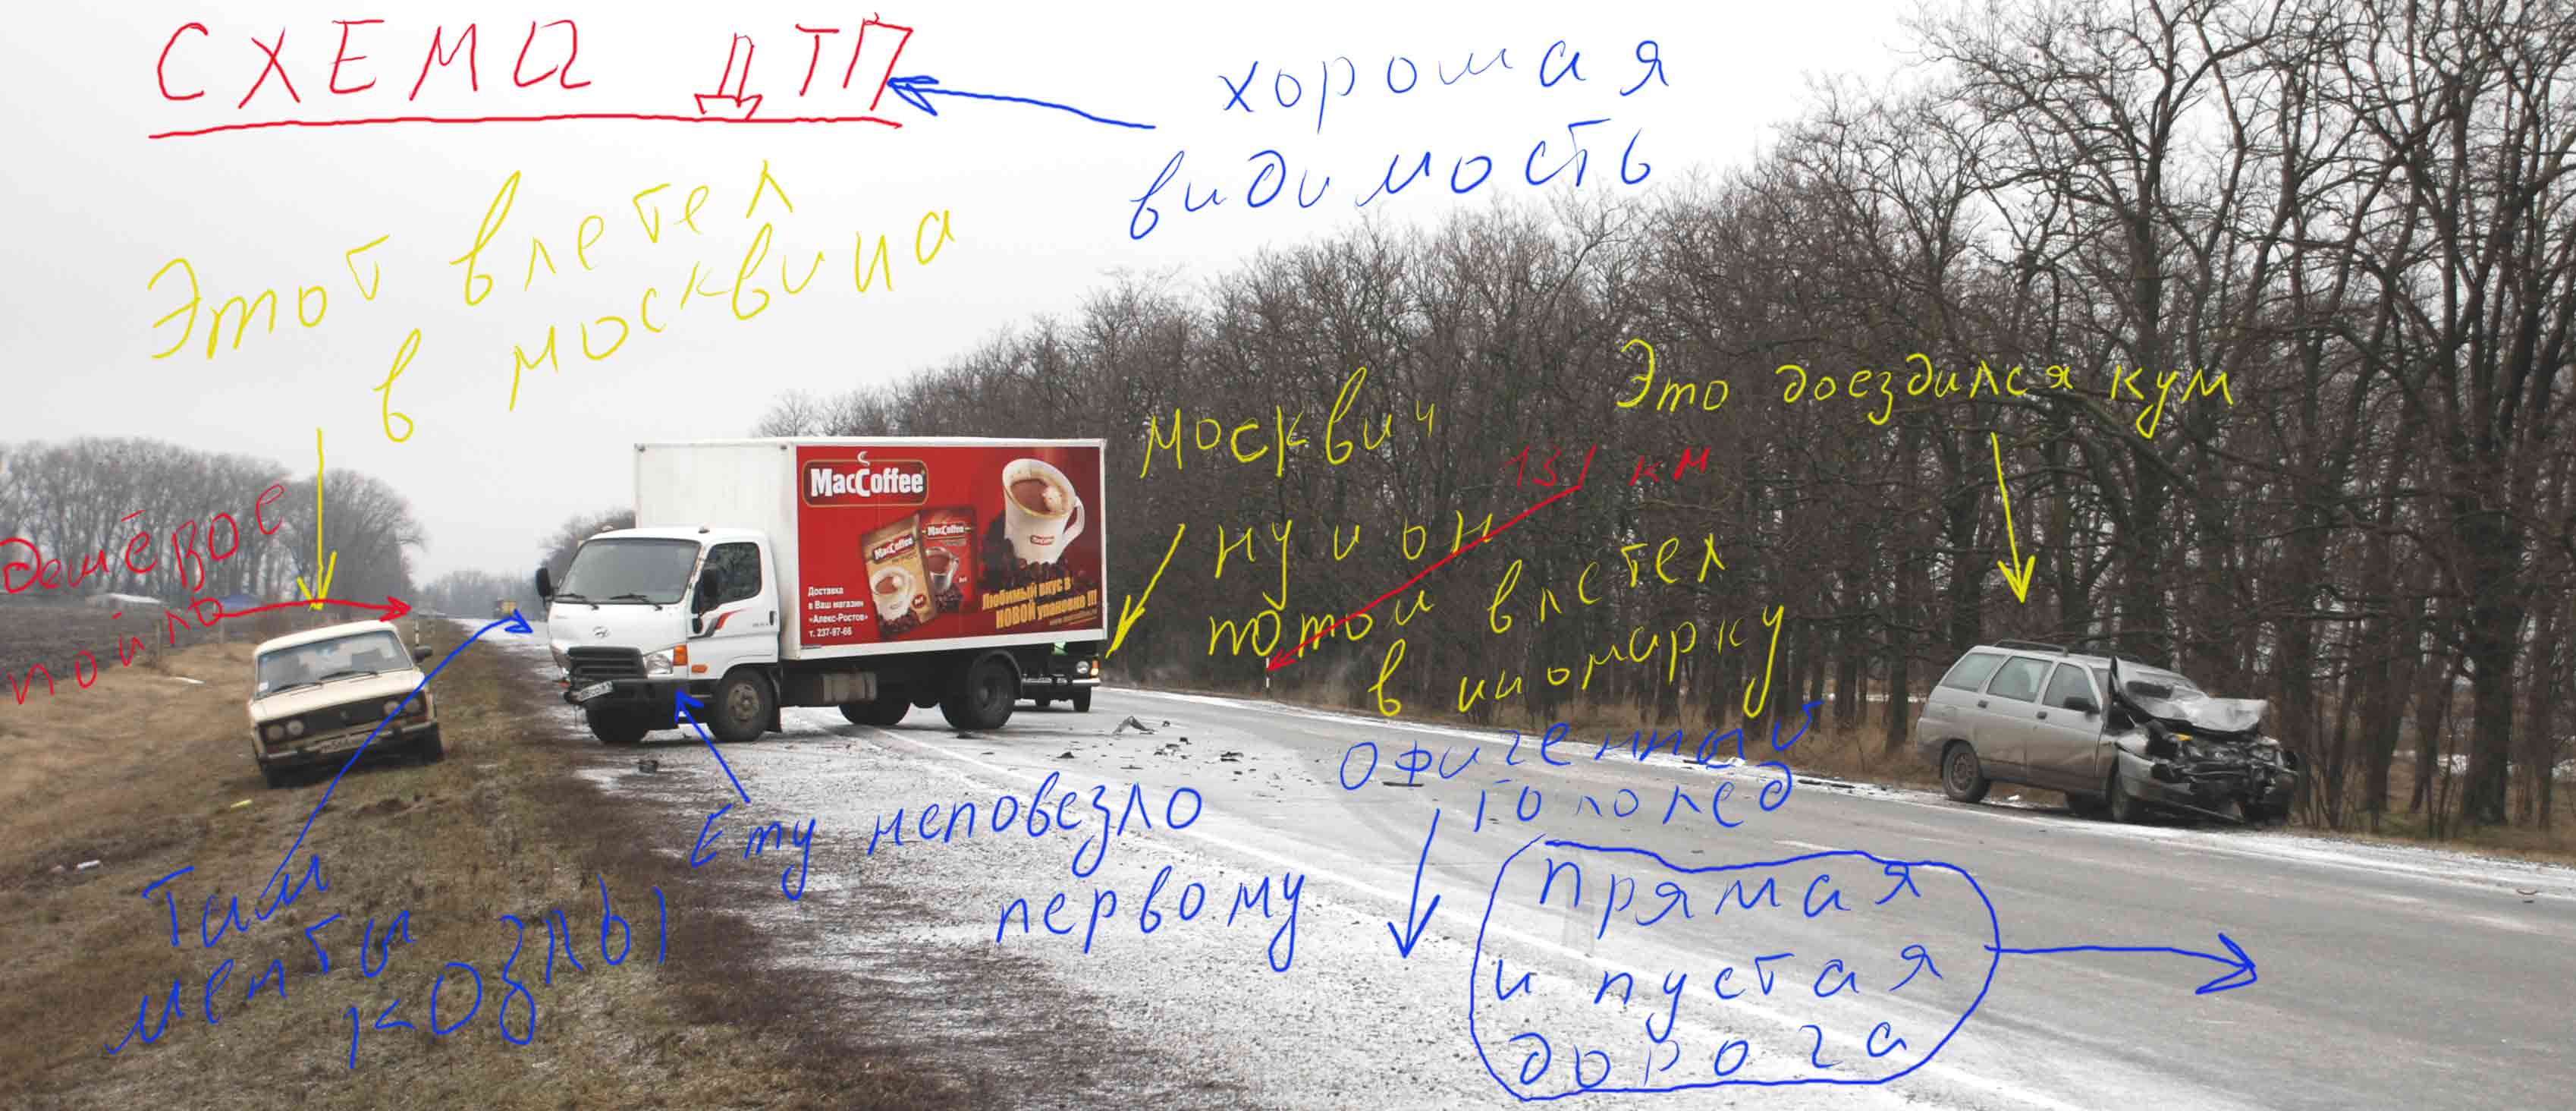 СХЕМА ДТП
хорошая
видимость
Этот влетел
в москвича
Это доездился кум
москвич
131 км
ну и он
потом влетел
в иномарку
дешёвое
пойло
MacCoffee
MacCoffee
MacCoffee
Доставка
в Ваш магазин
«Алекс-Ростов»
т. 237-97-66
Любимый вкус в
НОВОЙ упаковке !!!
Офигенный
гололед
Ему неповезло
первому
Там
менты
козлы
прямая
и пустая
дорога